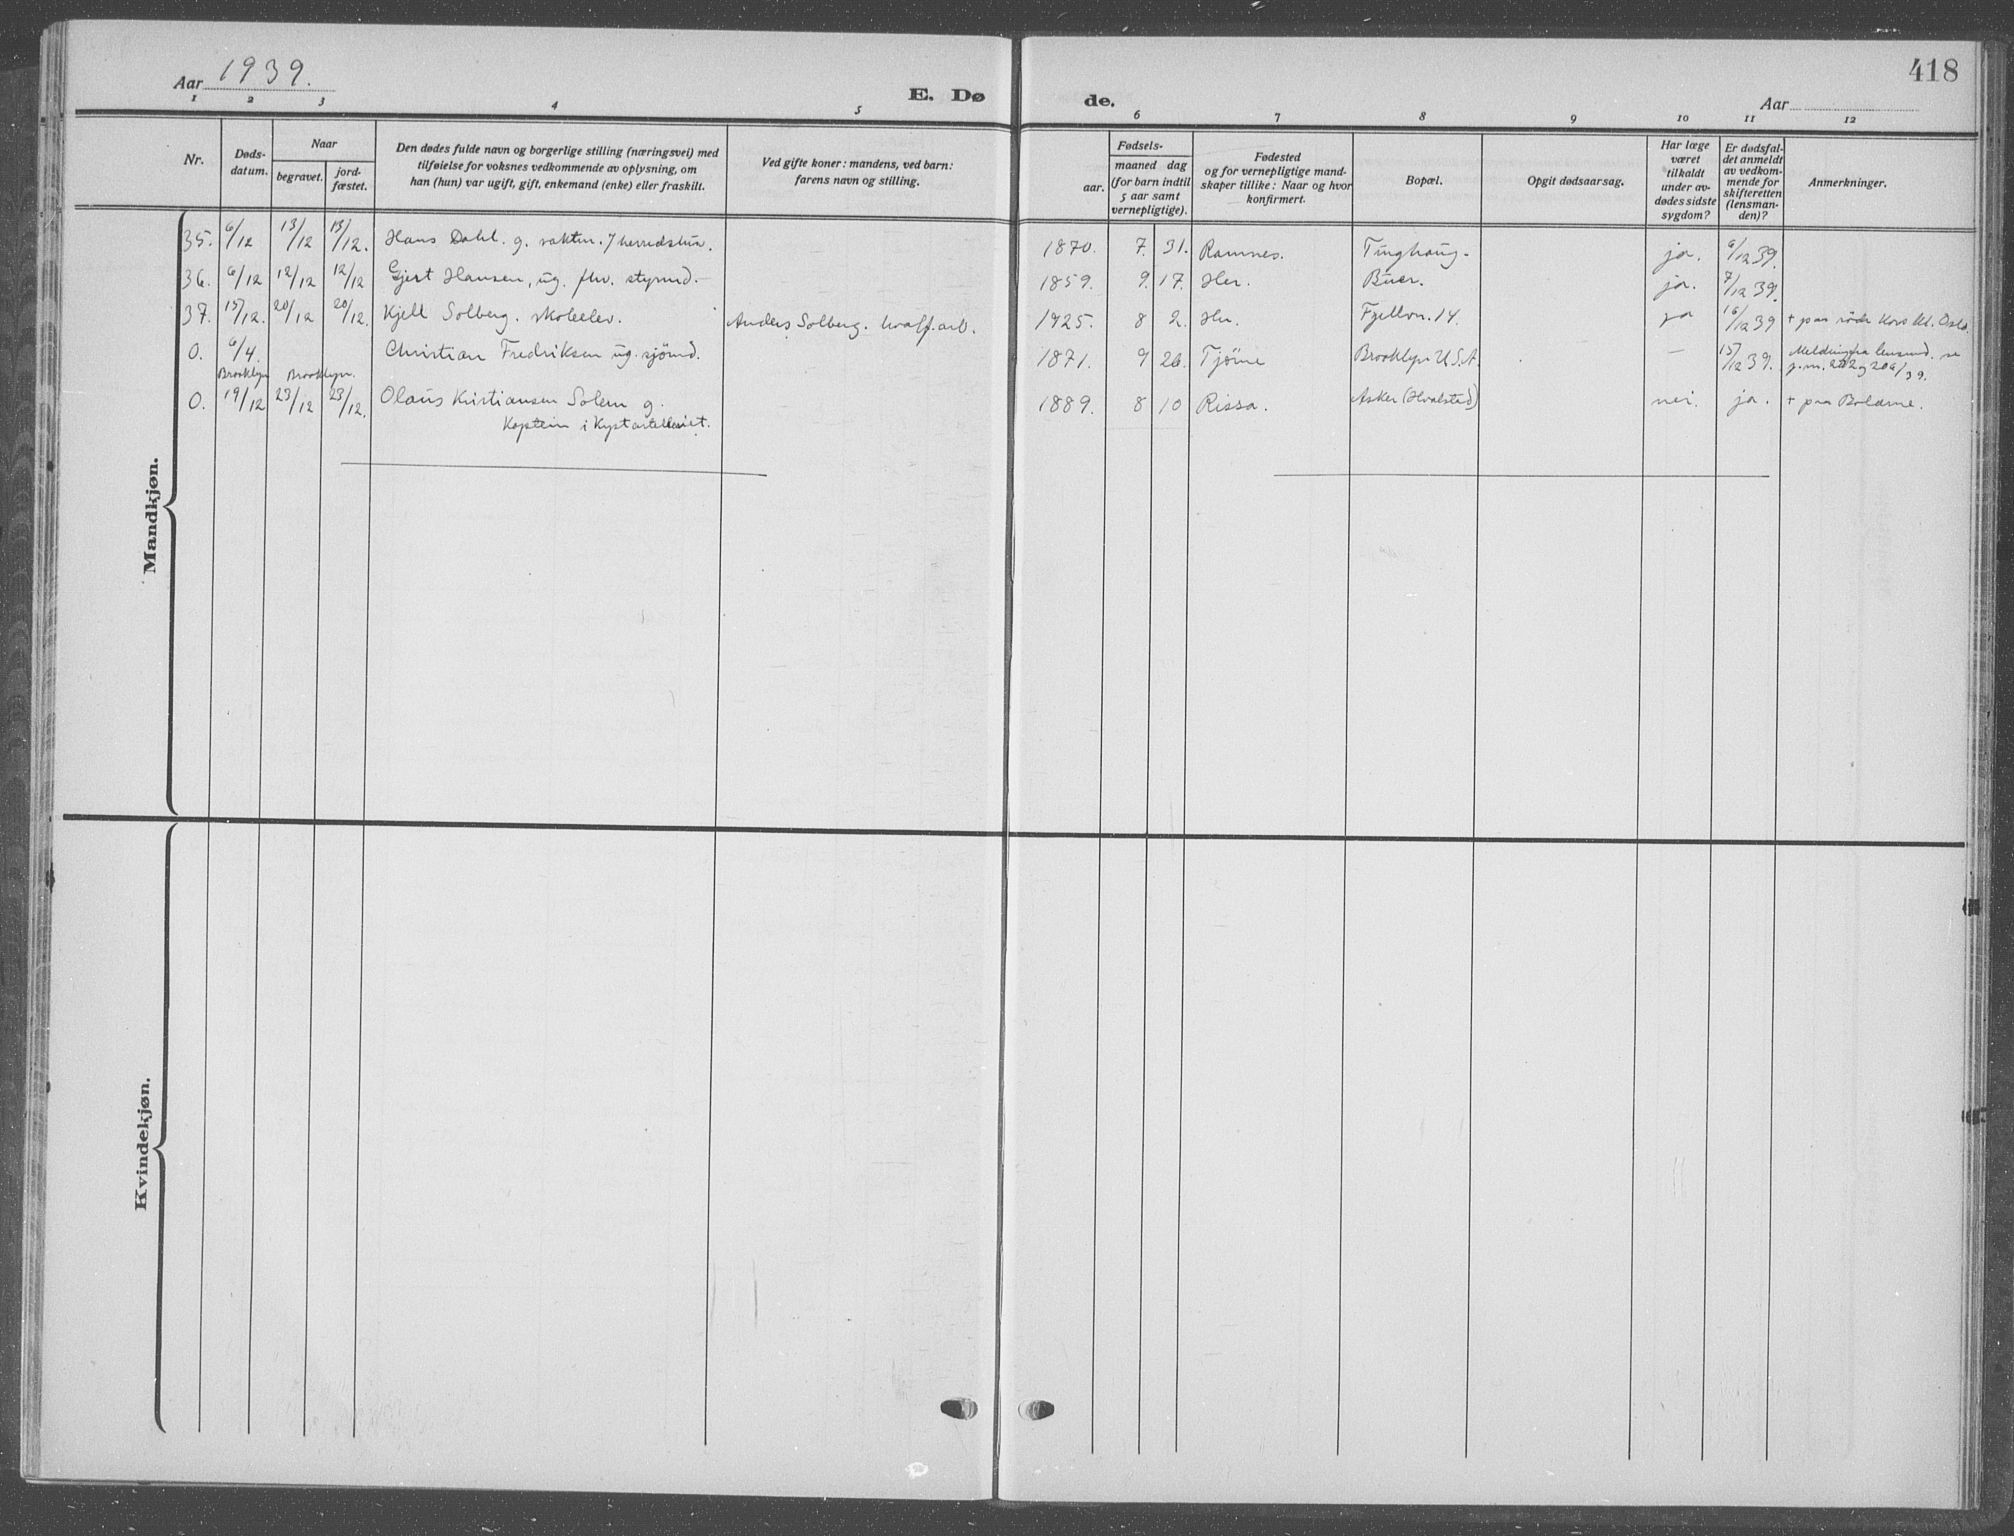 418
Aar 1939.
E. Dø de.
Aar
1 2 3 4 5 6 7 8 9 10 11 12
Nr.
Døds-
datum.
Naar
begravet.
jord-
fæstet.
Den dødes fulde navn og borgerlige stilling (næringsvei) med
tilføielse for voksnes vedkommende av oplysning, om
han (hun) var ugift, gift, enkemand (enke) eller fraskilt.
Ved gifte koner: mandens, ved barn:
farens navn og stilling.
Fødsels-
aar.
maaned dag
(for barn indtil
5 aar samt
vernepligtige).
Fødested
og for vernepligtige mand-
skaper tillike: Naar og hvor
konfirmert.
Bopæl.
Opgit dødsaarsag.
Har læge
været
tilkaldt
under av-
dødes sidste
sygdom?
Er dødsfal-
det anmeldt
av vedkom-
mende for
skifteretten
(lensman-
den)?
Anmerkninger.
Mandkjøn.
35. 6/12 13/12 13/12. Hans Dahl. g. vaktm. i herredshus. 1870. 7. 31. Ramnes. Tinghaug. ja. 6/12 39.
36. 6/12 12/12 12/12 Gjert Hansen, ug. fhv. styrmd. 1859. 9. 17. Her. Buer. ja. 7/12 39.
37. 15/12. 20/12 20/12. Kjell Solberg. skoleelev. Anders Solberg. hvalf.arb. 1925. 8 2. Her. Fjellvn. 14. ja 16/12 39 + paa röde Kors kl. Oslo.
0. 6/4. Christian Fredriksen ug. sjömd. 1871. 9 26 Tjöme Brooklyn U.S.A. — 15/12 39. Melding fra lensmd. se
Brooklyn Brooklyn. j.nr. 202 og 206/39.
0. 19/12 23/12 23/12. Olaus Kristiansen Solem g. 1889. 8 10 Rissa. Asker (Hvalstad) nei. ja. + paa Bolærne.
Kaptein i Kystartilleriet.
Kvindekjøn.